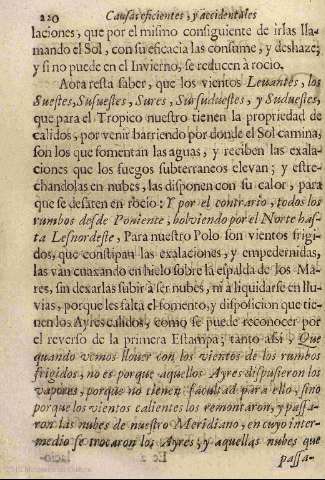 220 Causas eficientes, y accidentales
laciones, que por el mismo consiguiente de irlas lla-
mando el Sol, con su eficacia las consume, y deshaze;
y si no puede en el Invierno, se reducen à rocio.
Aora resta saber, que los vientos Leuantes, los
Suestes, Susuestes, Sures, Sursuduestes, y Suduestes,
que para el Tropico nuestro tienen la propiedad de
calidos, por venir barriendo por donde el Sol camina,
son los que fomentan las aguas, y reciben las exala-
ciones que los fuegos subterraneos elevan; y estre-
chandolas en nubes, las disponen con su calor, para
que se desaten en rocio: Y por el contrario, todos los
rumbos desde Poniente, bolviendo por el Norte has-
ta Lesnordeste, Para nuestro Polo son vientos frigi-
dos, que constipan las exalaciones, y empedernidas,
las vàn cuaxando en hielo sobre la espalda de los Ma-
res, sin dexarlas subir à ser nubes, ni à liquidarse en llu-
vias, porque les falta el fomento, y disposicion que tie-
nen los Ayres calidos, como se puede reconocer por
el reverso de la primera Estampa; tanto assi, Que
quando vemos llover con los vientos de los rumbos
frigidos, no es porque aquellos Ayres dispusieron los
vapores, porque no tienen facultad para ello, sino
porque los vientos calientes los remontaron, y passa-
ron las nubes de nuestro Meridiano, en cuyo inter-
medio se trocaron los Ayres; y aquellas nubes que
passa-